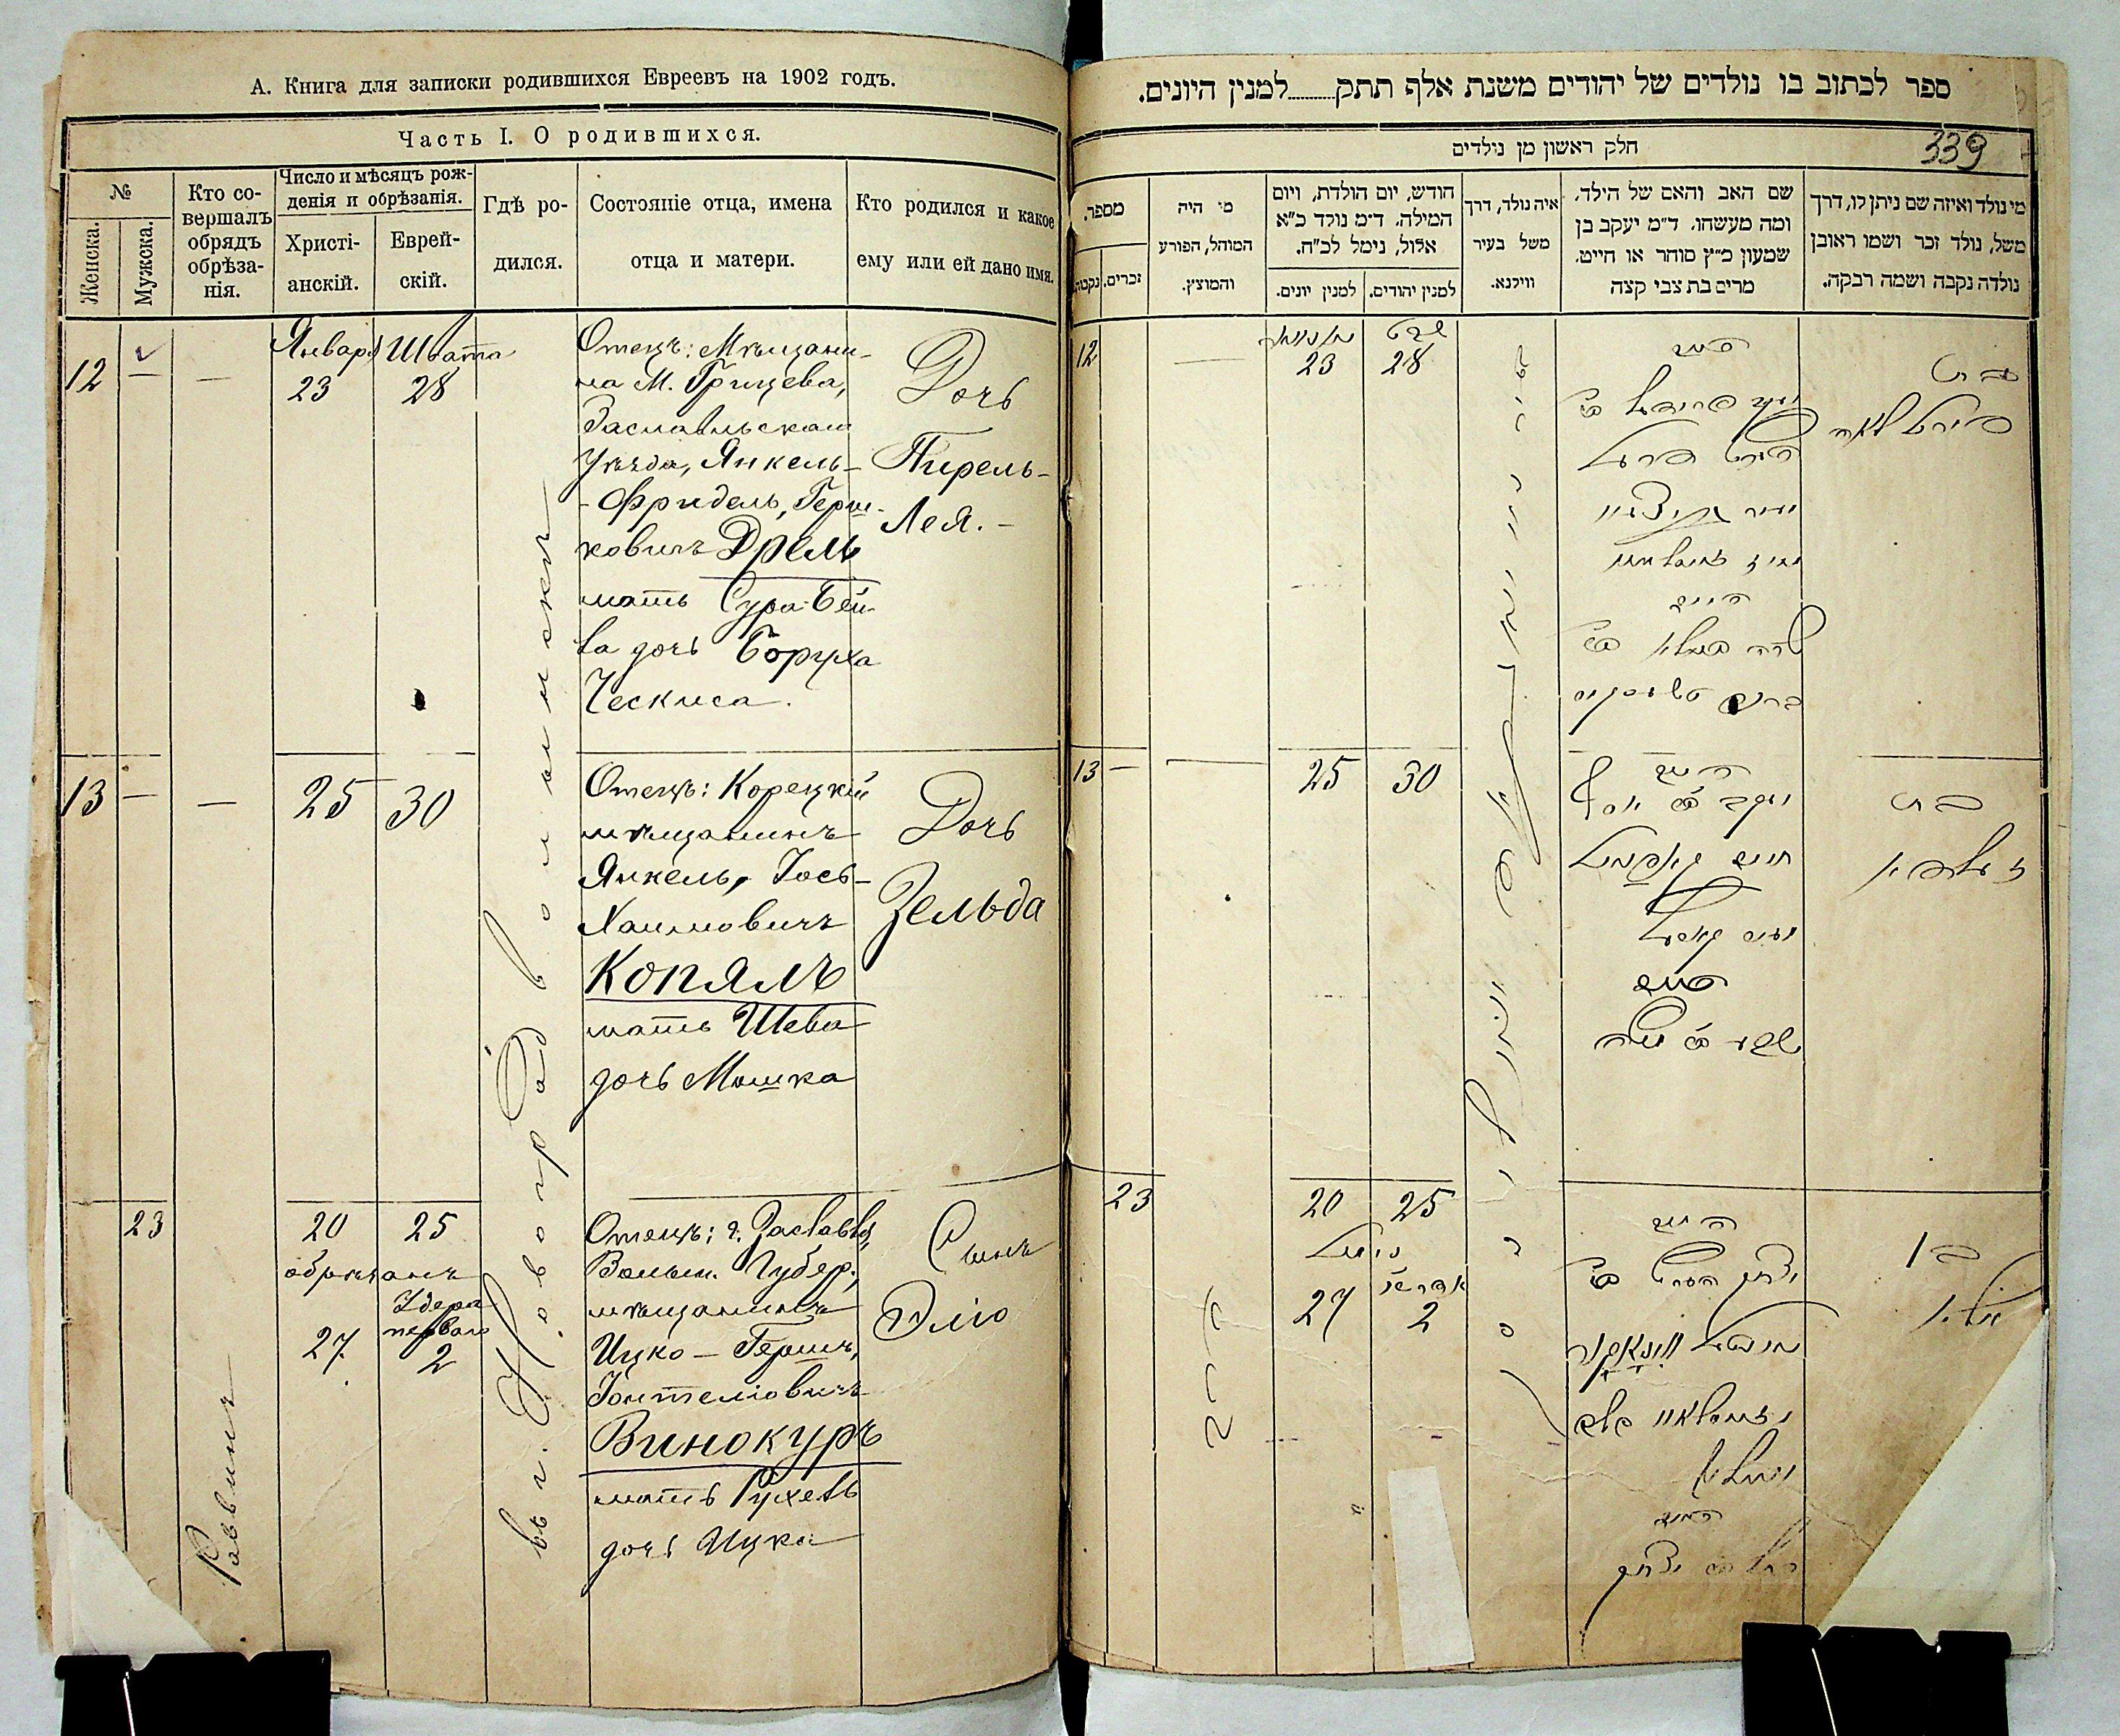 А. Книга для записки родившихся Евреевъ на 1902 годъ.
Часть I. О родившихся.
№
Женска.
Мужска.
Кто со-
вершалъ
обрядъ
обрѣза-
нія.
Число и мѣсяцъ рож-
денія и обрѣзанія.
Христі-
анскій.
Еврей-
скій.
Гдѣ ро-
дился.
Состояніе отца, имена
отца и матери.
Кто родился и какое
ему или ей дано имя.
12 — —
Января
23
Швата
28
Отецъ: Мѣщани-
на М. Грицева,
Заславльскаго
Уѣзда, Янкель-
- Фридель, Герш-
ковичъ Дрель
мать Сура-Бей-
ла дочь Боруха
Ческиса.
Дочь
Пирель-
Лея.-
13 — — 25 30
Отецъ: Корецкій
мѣщанинъ
Янкель, Іось-
Хаимовичъ
Копялъ
мать Шева
дочь Мошка
Дочь
Зельда
23
20 25
обрѣзанъ
Адера
перваго
27. 2
Раввинъ
въ г. Новоградволынскѣ
Отецъ: г. Заславля,
Волын. Губер.,
мѣщанинъ
Ицко - Гершъ,
Іонтеліовичъ
Винокуръ
мать Рухель
дочь Ицка
Сынъ
Эліо
ספר לכתוב בו נולדים של יהודים משנת אלף תתק........למנין היונים.
339
חלק ראשון מן נולדים
מספר.
נקבות
זכרים.
מי היה
המוהל, הפורע
והמוצץ.
חודש, יום הולדת, ויום
המילה. ד״מ נולד כ״א
אלול, נימל לכ״ח.
למנין יונים.
למנין יהודים.
איה נולד, דרך
משל בעיר
ווילנא.
שם האב והאם של הילד,
ומה מעשהו. ד״מ יעקב בן
שמעון כ״ץ סוחר או חייט.
מרים בת צבי קצה
מי נולד ואיזה שם ניתן לו, דרך
משל, נולד זכר ושמו ראובן
נולדה נקבה ושמה רבקה.
12
יאנואר
23
שבט
28
האב
בת
פירל לאה
האם
13 — 25 30
האב
חיים קאפיל
האם
שבע בת משה
בת
זעלדא
23
20 25
נימול
27 2
הרב
האב
האם
רחל בת יצחק
בן
אלי׳